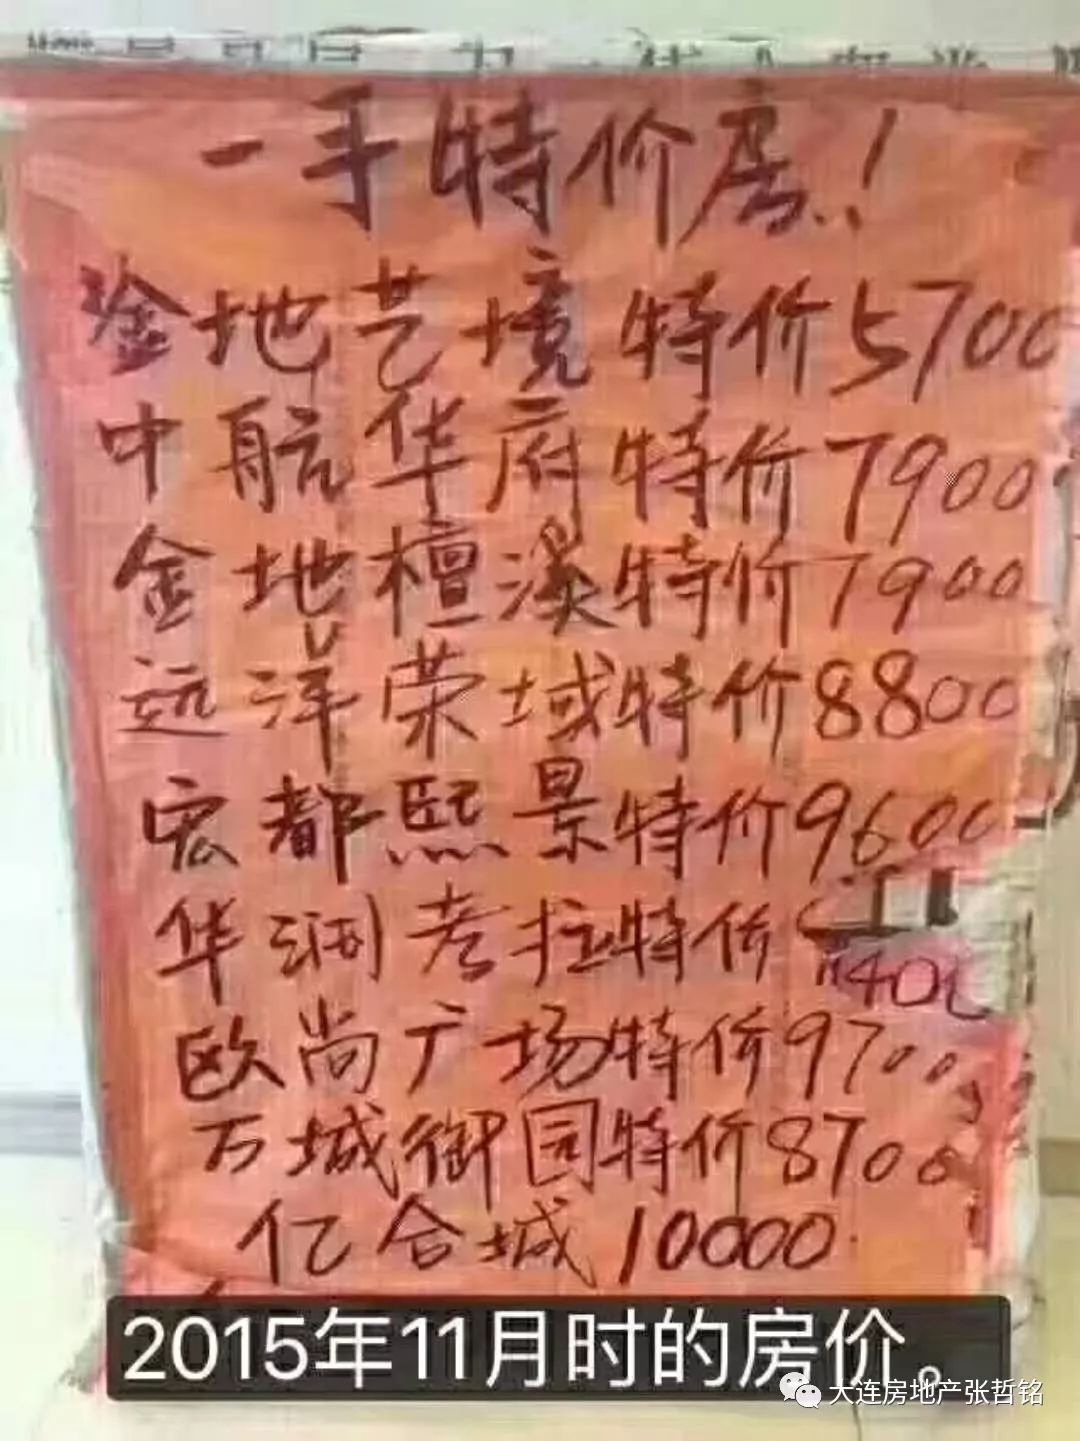 一手特价房!
金地艺境特价5700
中航华府特价7900
金地檀溪特价7900
远洋荣域特价8800
宏都熙景特价9600
华润考拉特价
欧尚广场特价9700
万城御园特价8700
亿合城10000
2015年11月时的房价。
大连房地产张哲铭